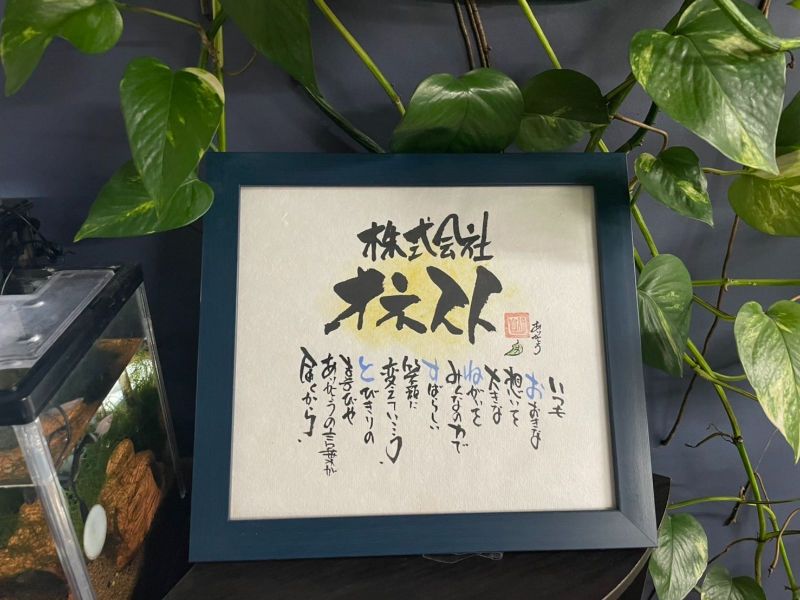 株式会社
オネスト
ありがとう
いつも
おおきな
想いを
大きな
ねがいを
みんなの力で
すばらしい
笑顔に
変えていこう
とびきりの
喜びや
ありがとうの言葉が
届くから